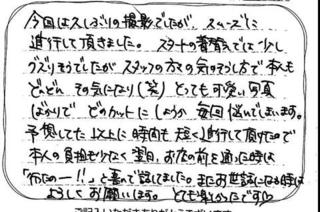 今回は久しぶりの撮影でしたが、スムーズに
進行して頂きました。スタートの着替えでは少し
グズりそうでしたがスタッフの方々の気のそらし方で本人も
どんどん その気になり(笑) とっても可愛い写真
ばかりで どのカットにしようか 毎回悩んでしまいます。
予想してた以上に時間も短く進行して頂けたので
本人の負担も少なく翌日、お店の前を通った時は
「行ったのー!!」と喜んで話してました。またお世話になる時は
よろしくお願いします。とても楽しかったです♡